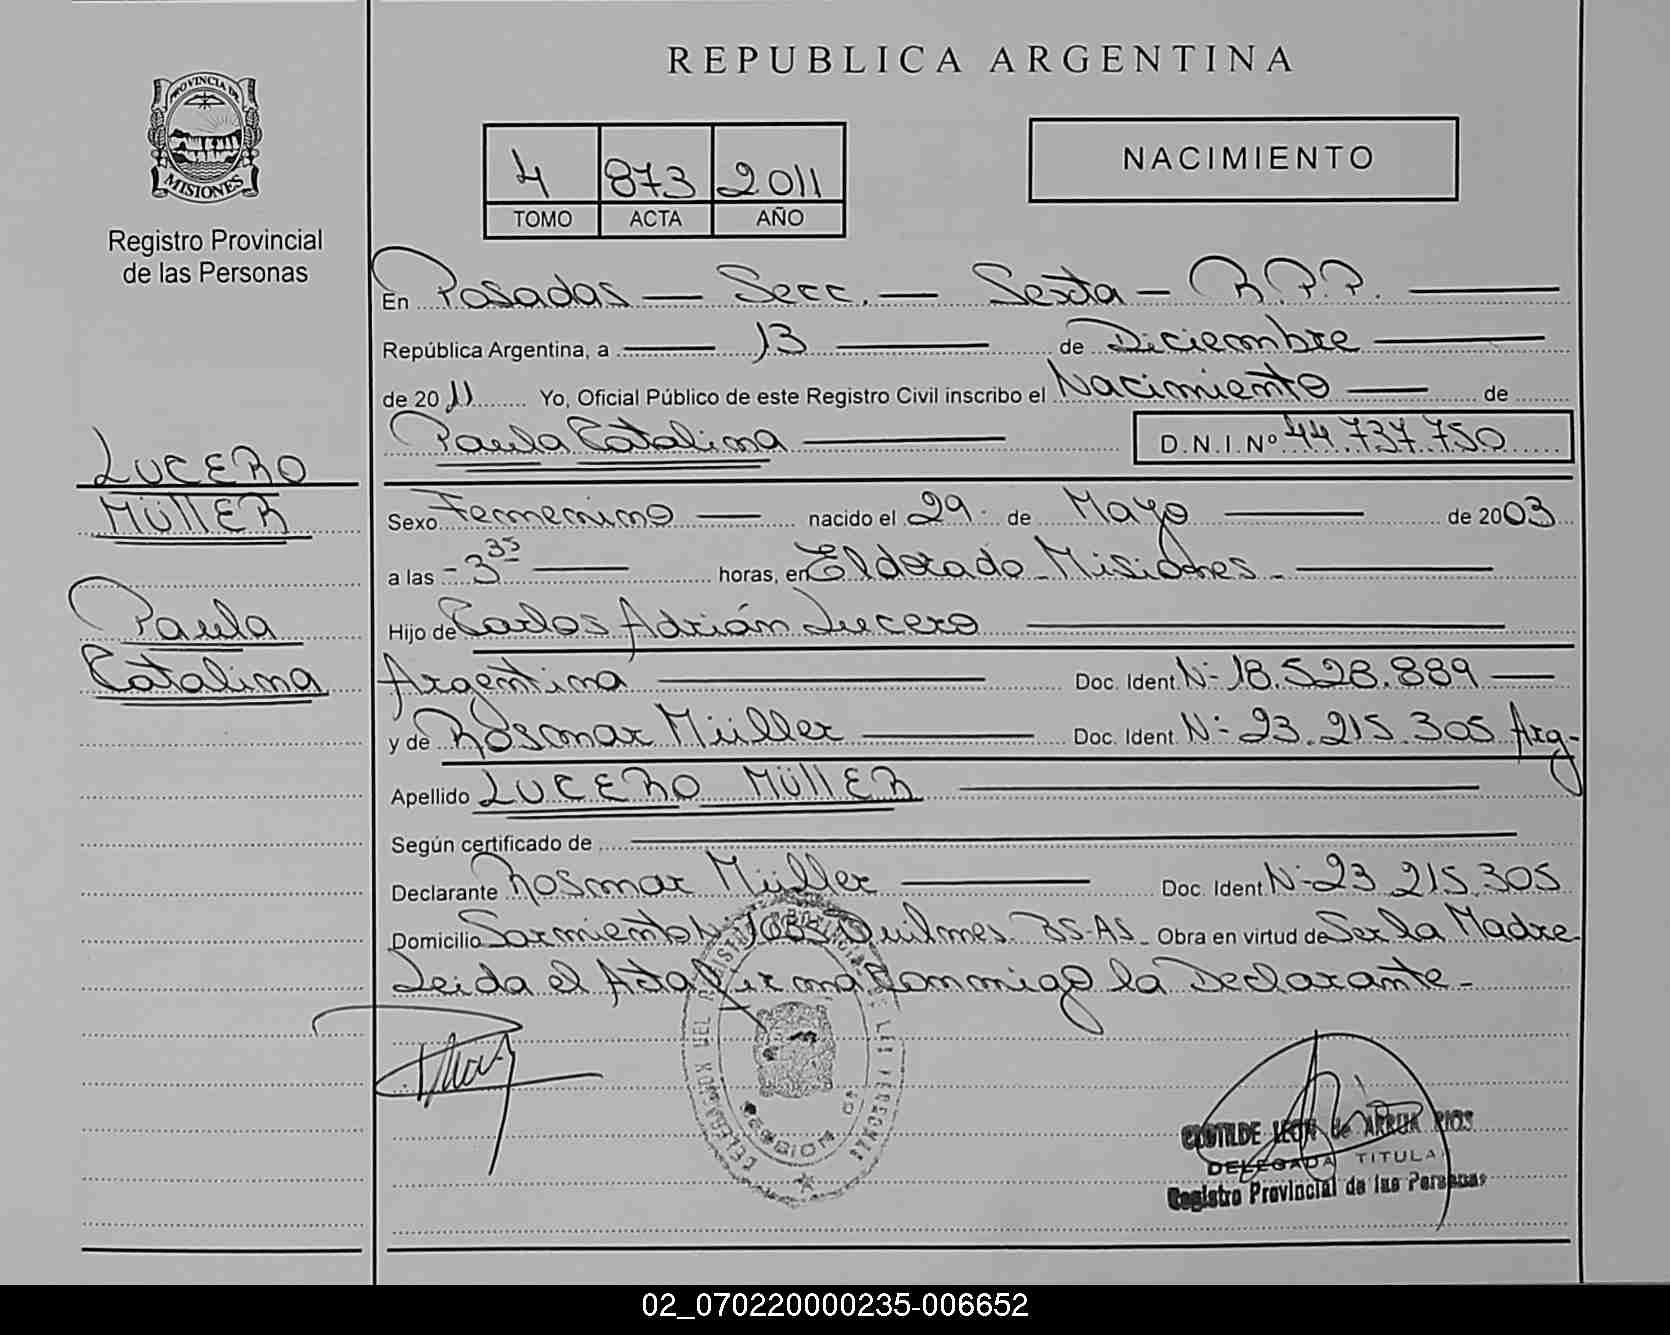 REPUBLICA ARGENTINA
PROVINCIA DE
MISIONES
Registro Provincial
de las Personas
4 873 2011
TOMO ACTA AÑO
NACIMIENTO
En Posadas — Secc. — Sexta — R.P.P. —
República Argentina, a — 13 — de Diciembre —
de 2011 Yo, Oficial Público de este Registro Civil inscribo el Nacimiento — de
Paula Catalina — D.N.I.Nº 44.737.750
LUCERO
MÜllER
Paula
Catalina
Sexo Femenino — nacido el 29 de Mayo — de 2003
a las - 3 35 — horas, en Eldorado - Misiones - —
Hijo de Carlos Adrián Lucero —
Argentina — Doc. Ident. Nº 18.528.889 —
y de Rosmar Müller — Doc. Ident. Nº 23.215.305 Arg-
Apellido LUCERO MÜllER —
Según certificado de —
Declarante Rosmar Müller — Doc. Ident. Nº 23.215.305
Domicilio Sarmiento Nº Quilmes BS-AS- Obra en virtud de Ser la Madre
Leida el Acta Firma Conmigo la Declarante -
CLOTILDE LEON de ARRUA RIOS
DELEGADA TITULAR
Registro Provincial de las Personas
02_070220000235-006652